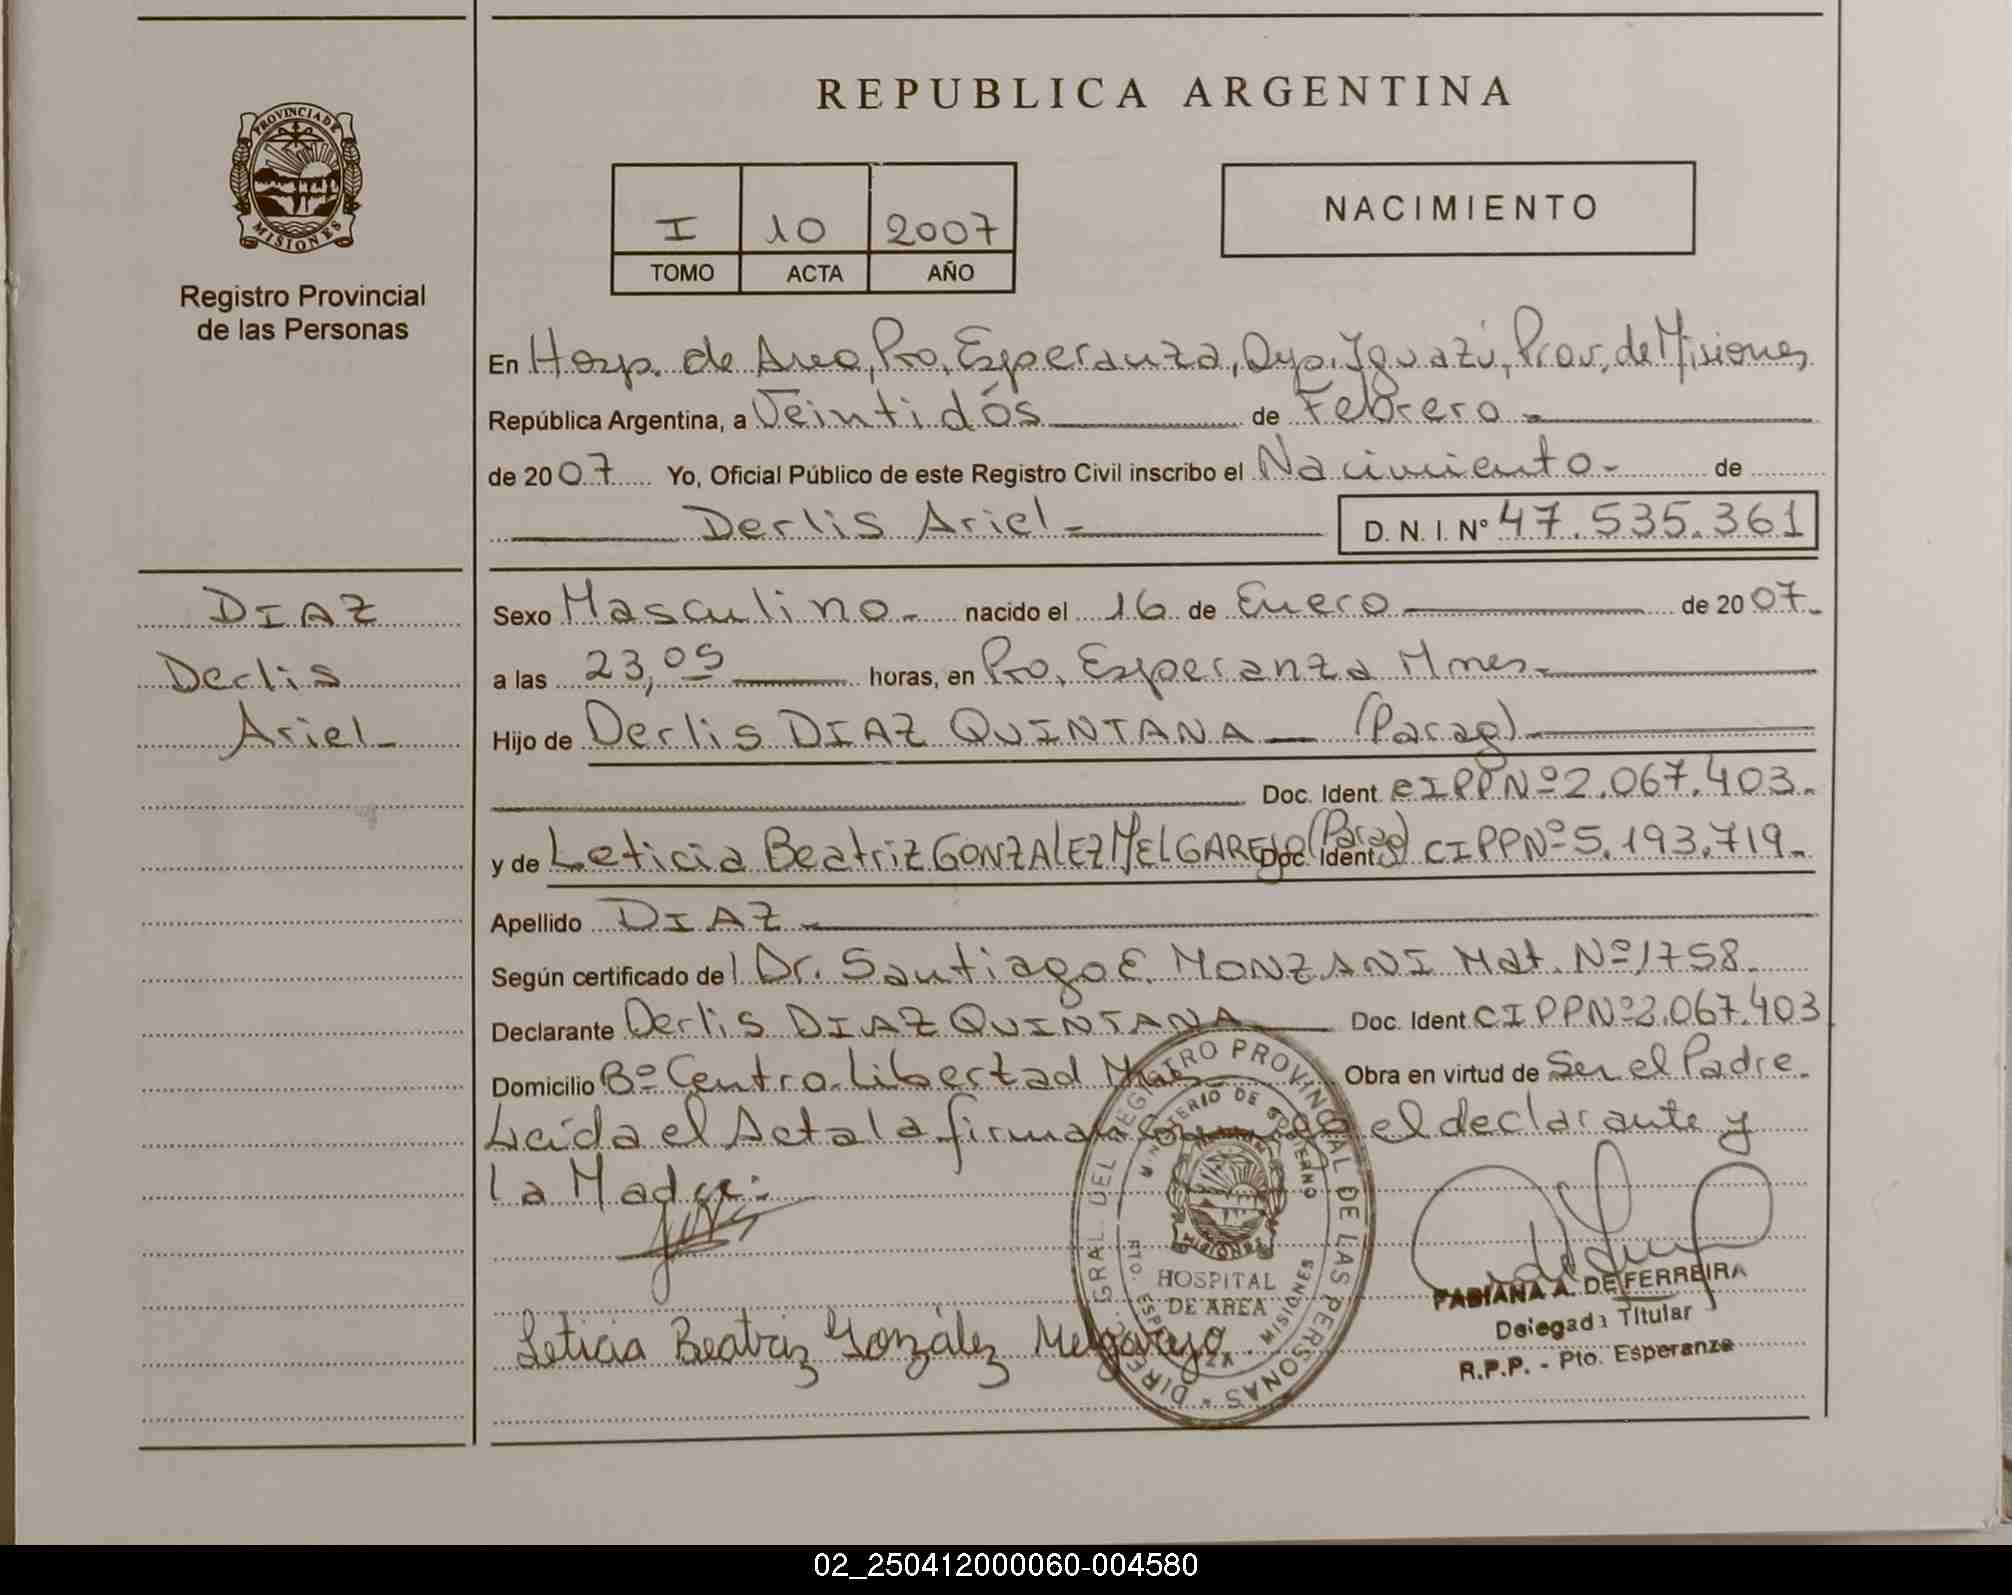 REPUBLICA ARGENTINA
PROVINCIA DE MISIONES
Registro Provincial
de las Personas
I 10 2007
TOMO ACTA AÑO
NACIMIENTO
En Hosp. de Area, Pto, Esperanza, Dpto. Iguazú, Prov, de Misiones
República Argentina, a Veintidós de Febrero
de 2007 Yo, Oficial Público de este Registro Civil inscribo el Nacimiento de
Derlis Ariel D. N. I. N° 47.535.361
DIAZ
Derlis
Ariel
Sexo Masculino nacido el 16 de Enero de 2007
a las 23,05 horas, en Pto, Esperanza Mnes
Hijo de Derlis DIAZ QUINTANA (Parag)
Doc. Ident. CIPPNº2.067.403.
y de Leticia Beatriz GONZALEZ MELGAREJO (Parag) Doc. Ident. CIPPNº5.193.719
Apellido DIAZ
Según certificado del Dr. Santiago E. MONZANI Mat. Nº1758
Declarante Derlis DIAZ QUINTANA Doc. Ident. CIPPNº2.067.403
Domicilio Bº Centro Libertad Mnes Obra en virtud de Ser el Padre.
Leída el Acta la firman el declarante y
La Madre:
Leticia Beatriz González Melgarejo
DIREC. GRAL. DEL REGISTRO PROVINCIAL DE LAS PERSONAS
MINISTERIO DE GOBIERNO
HOSPITAL
DE AREA
PTO. ESPERANZA - MISIONES
FABIANA A. DE FERREIRA
Delegada Titular
R.P.P. - Pto. Esperanza
02_250412000060-004580